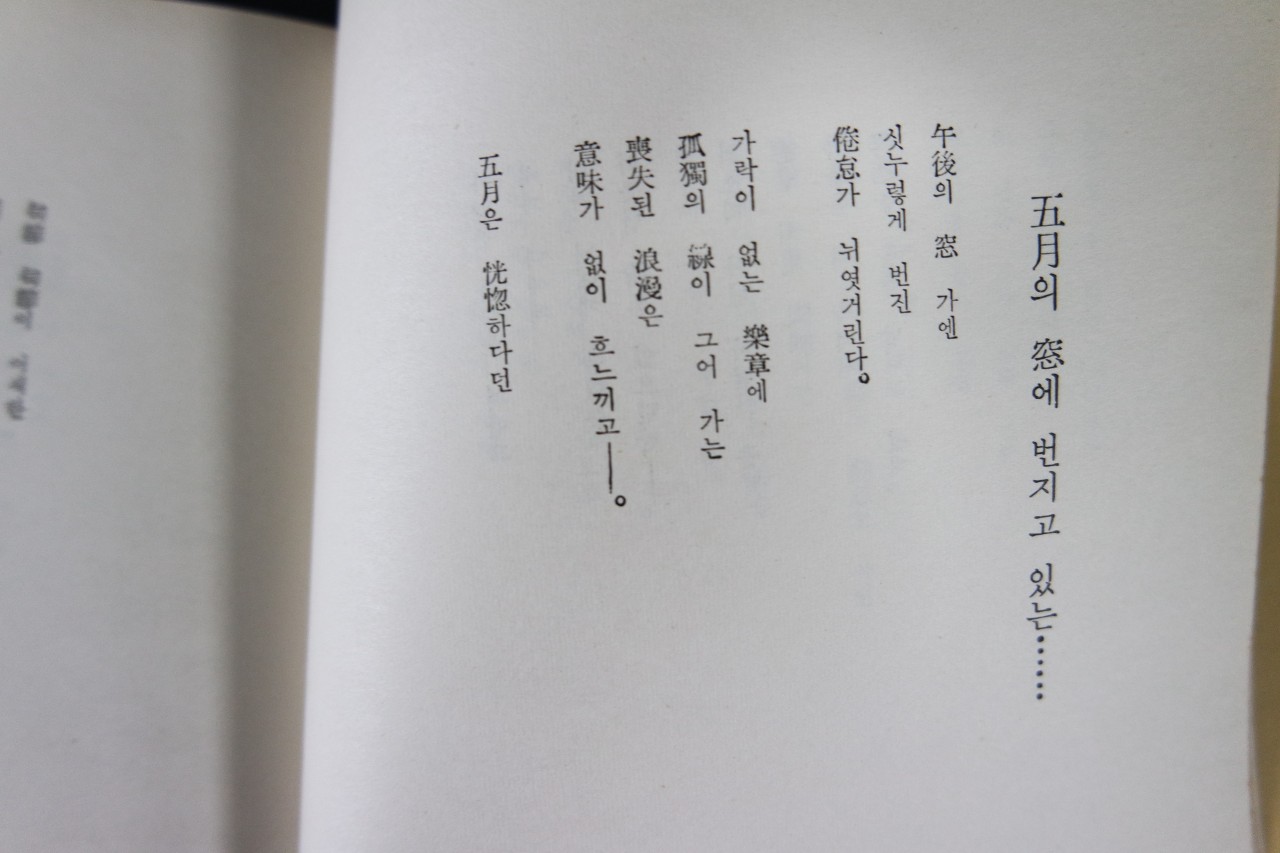 五月의 窓에 번지고 있는……
午後의 窓 가엔
싯누렇게 번진
倦怠가 뉘엿거린다。
가락이 없는 樂章에
孤獨의 線이 그어 가는
喪失된 浪漫은
意味가 없이 흐느끼고――。
五月은 恍惚하다던